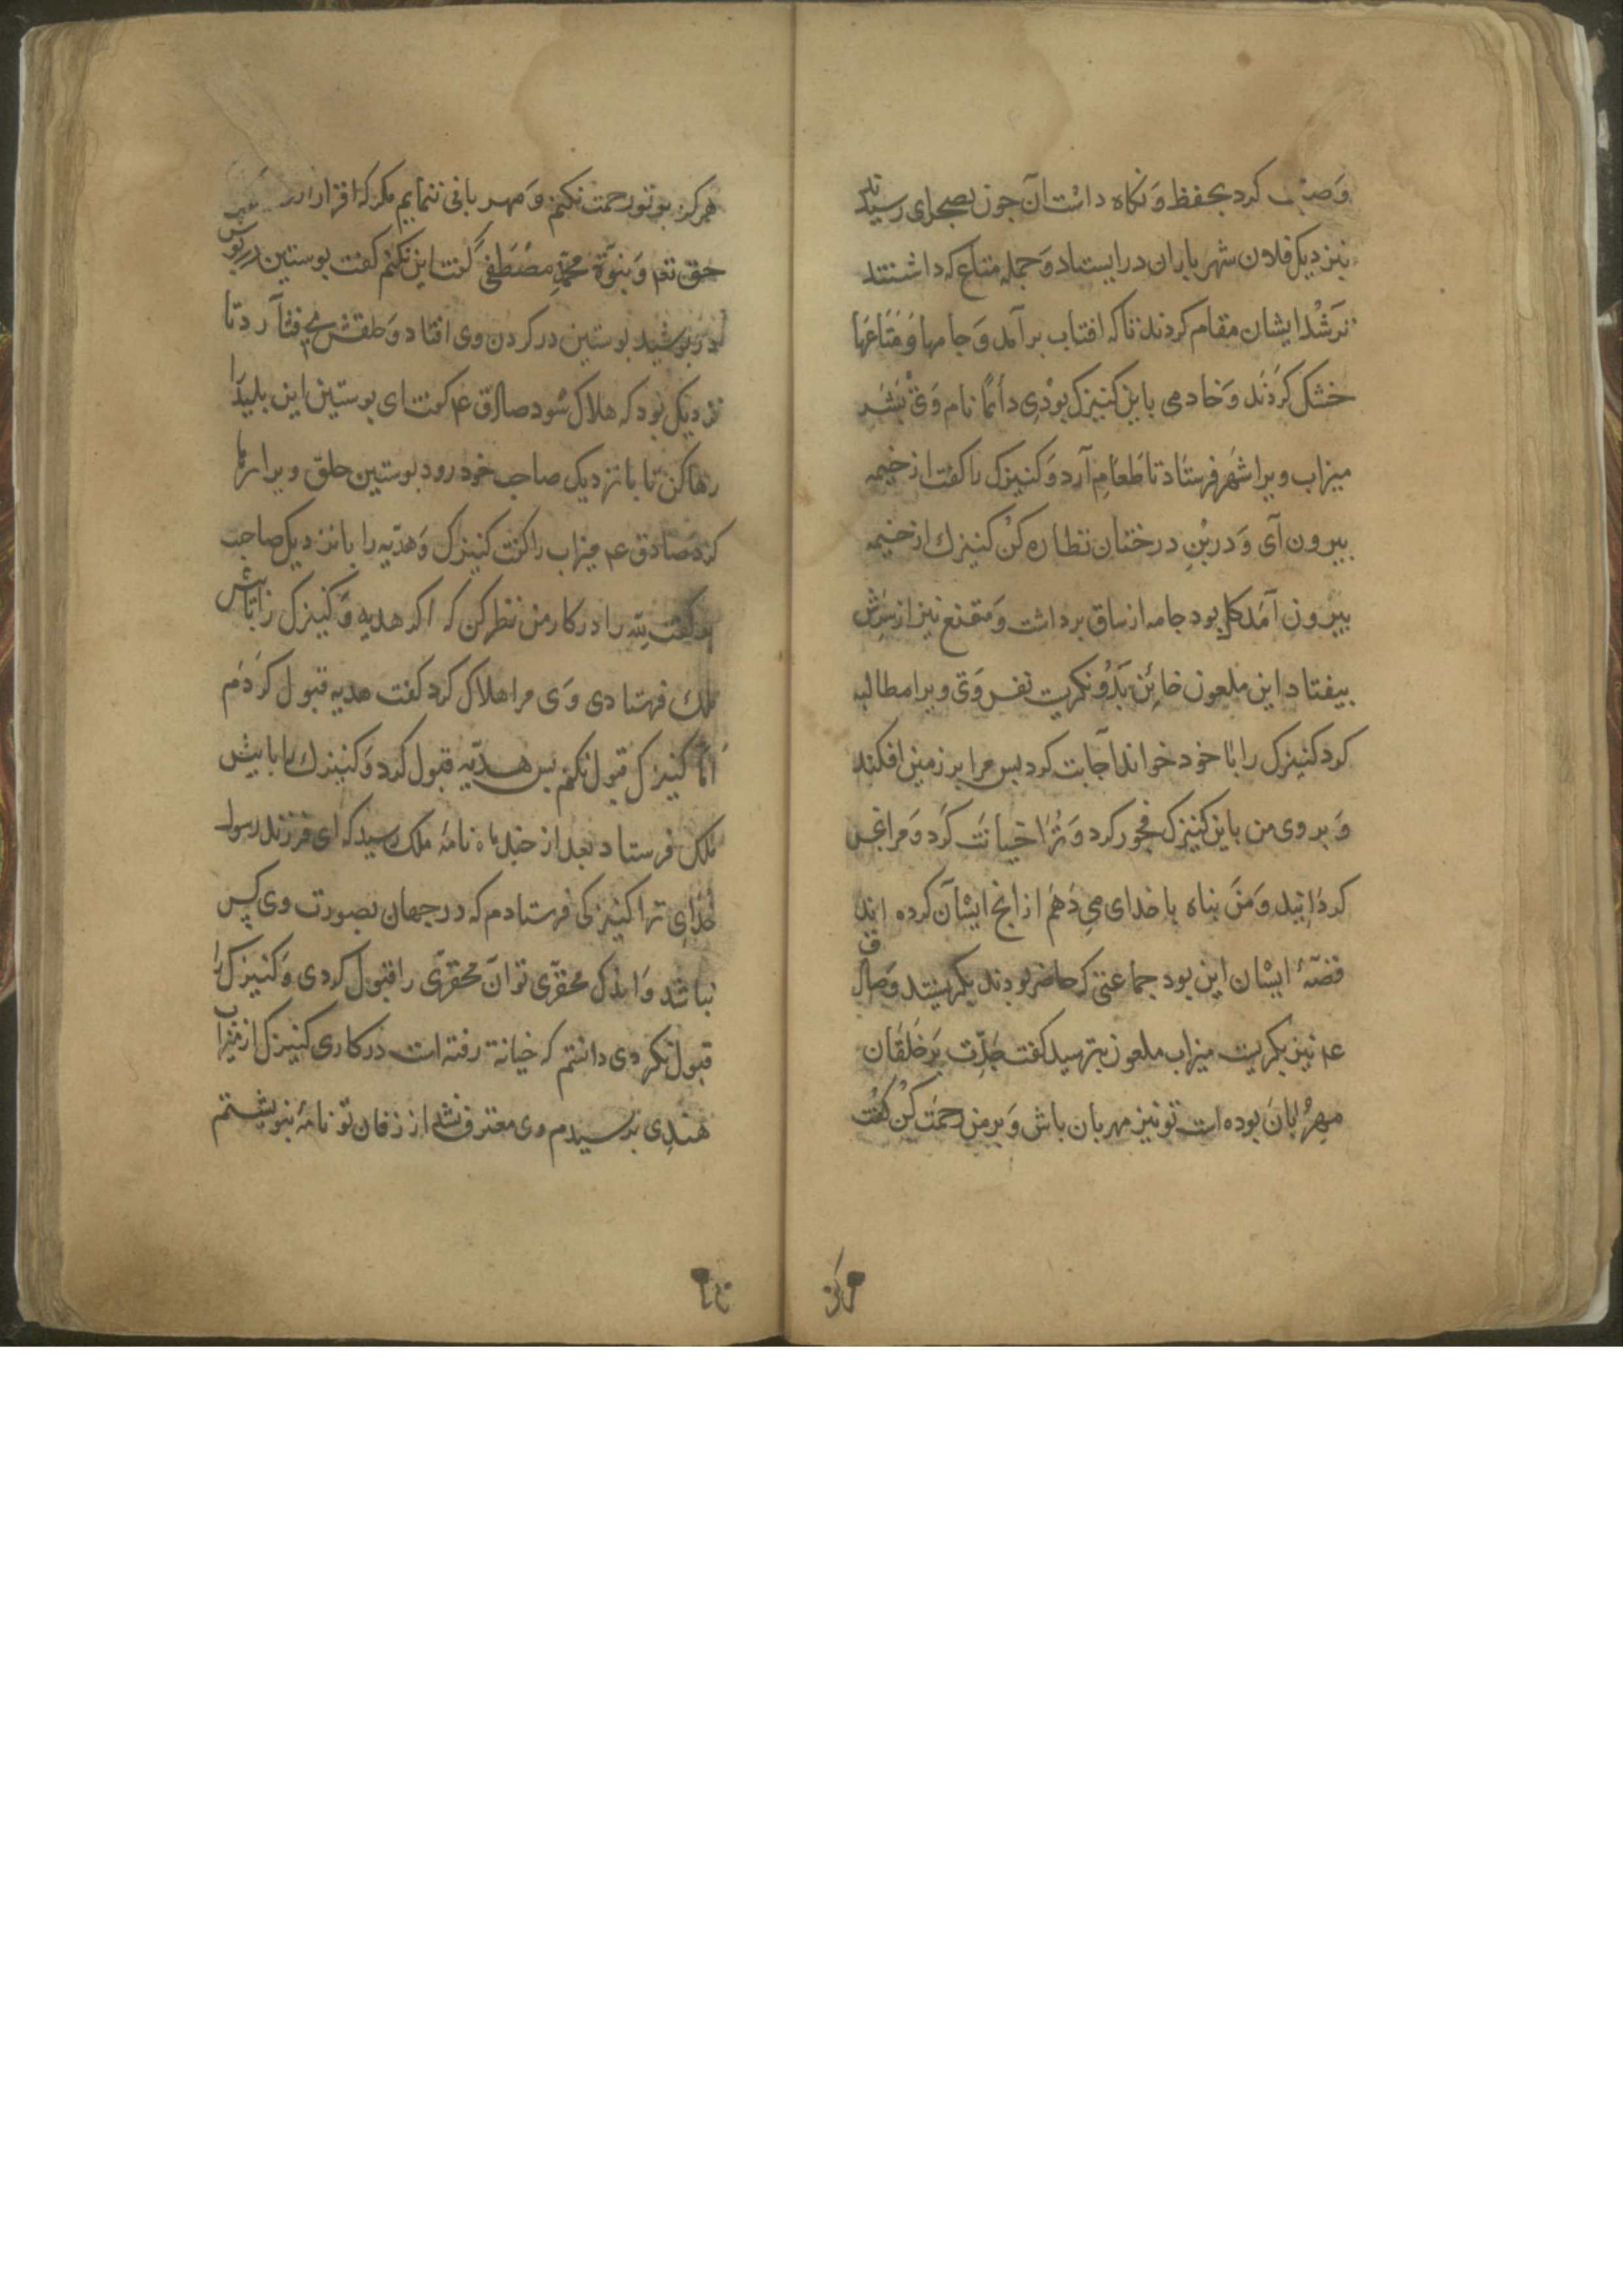 وَصیّت کرد بحفظ وَ نکاه داشت آن جون بصحرای رسیدند
بنزدیک فلان شهر باران درایستاد وَ جمله متاع که داشتند
تر شد ایشان مقام کردند تا که افتاب برآمد وَ جامها وَ متاعها
خشک کردند وَ خادمی با این کنیزک بودی نام وی بشر
میزاب ویرا شهر فرستاد تا طعام آرد وَ کنیزک را کفت از خیمه
بیرون آی وَ درین درختان نظاره کن کنیزک از خیمه
بیرون آمد کل بود جامه از ساق برداشت وَ مقنع نیز از سرش
بیفتاد این ملعون خائن بدو نکریت نفس وی ویرا مطالبه
کرد کنیزک را با خود خواند اجابت کرد بس مرا بر زمین افکند
وَ بر وی من باین کنیزک فجور کرد وَ ترا خیانت کرد وَ مرا نجس
کردانید وَ من بناه با خدای می دهم از انج ایشان کرده اند
قصّهٔ ایشان این بود جماعتی که حاضر بودند بکریستند وَ صادق
عم نیز بکریت میزاب ملعون بترسید کفت جدّت بر خلقان
مهربان بوده است تو نیز مهربان باش وَ بر من رحمت کن کفت
هرکز بر تو رحمت نکنم وَ مهربانی ننمایم مکر که اقرار
حق تعم وَ بنبوّة محمّد مصطفی کفت این نکنم کفت بوستین در بوش
دربوشید بوستین در کردن وی افتاد وَ حلقش می فشارد تا
نزدیک بود که هلاک شود صادق عم کفت ای بوستین این بلید را
رها کن تا با نزدیک صاحب خود رود بوستین حلق ویرا رها
کرد صادق عم میزاب را کفت کنیزک وَ هدیّه را با نزدیک صاحب
کفت را در کار من نظر کن که اکر هدیه وَ کنیزک را با بیش
ملک فرستادی وَی مرا هلاک کرد کفت هدیه قبول کردم
امّا کنیزک قبول نکنم بس هدیّه قبول کرد وَ کنیزک را با بیش
ملک فرستاد بعد از جند ماه نامهٔ ملک رسید که ای فرزند رسول
خدای ترا کنیزکی فرستادم که در جهان بصورت وی کس
نباشد وَ اندک محقّری تو آن محقّری را قبول کردی وَ کنیزک را
قبول نکردی دانستم که خیانة رفته است در کاری کنیزک از میزاب
هندی بترسیدم وی معترف نشد از زفان تو نامهٔ بنویشتم